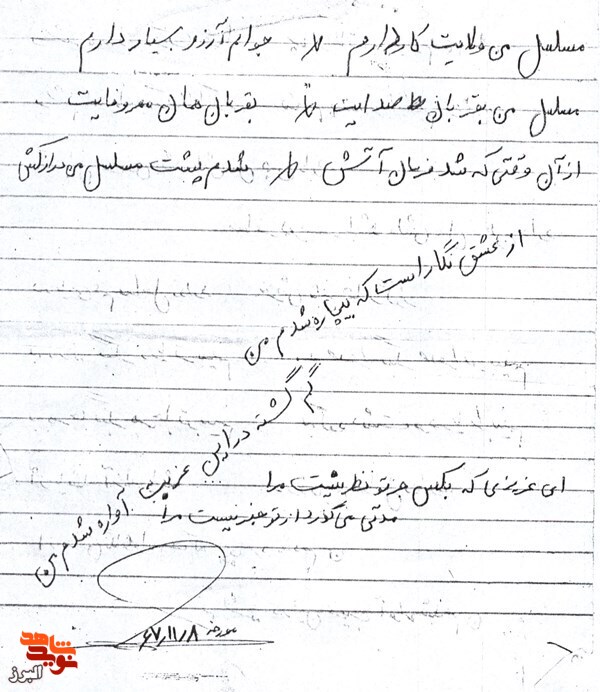 مسلسل من ولایت کار دارم * جوانم آرزو بسیار دارم
مسلسل من بقربان صدایت * بقربان همان مهر و وفایت
از آن وقتی که شد فرمان آتش * شدم پشت مسلسل من درازکش
از عشق نگار است که بیچاره شدم من
گم گشته در این غربت آواره شدم من
ای عزیزی که بکس جز تو نظر نیست مرا
مدتی می گذرد از تو خبر نیست مرا
مورخه ۶۷/۱۱/۸
نوید شاهد
البرز